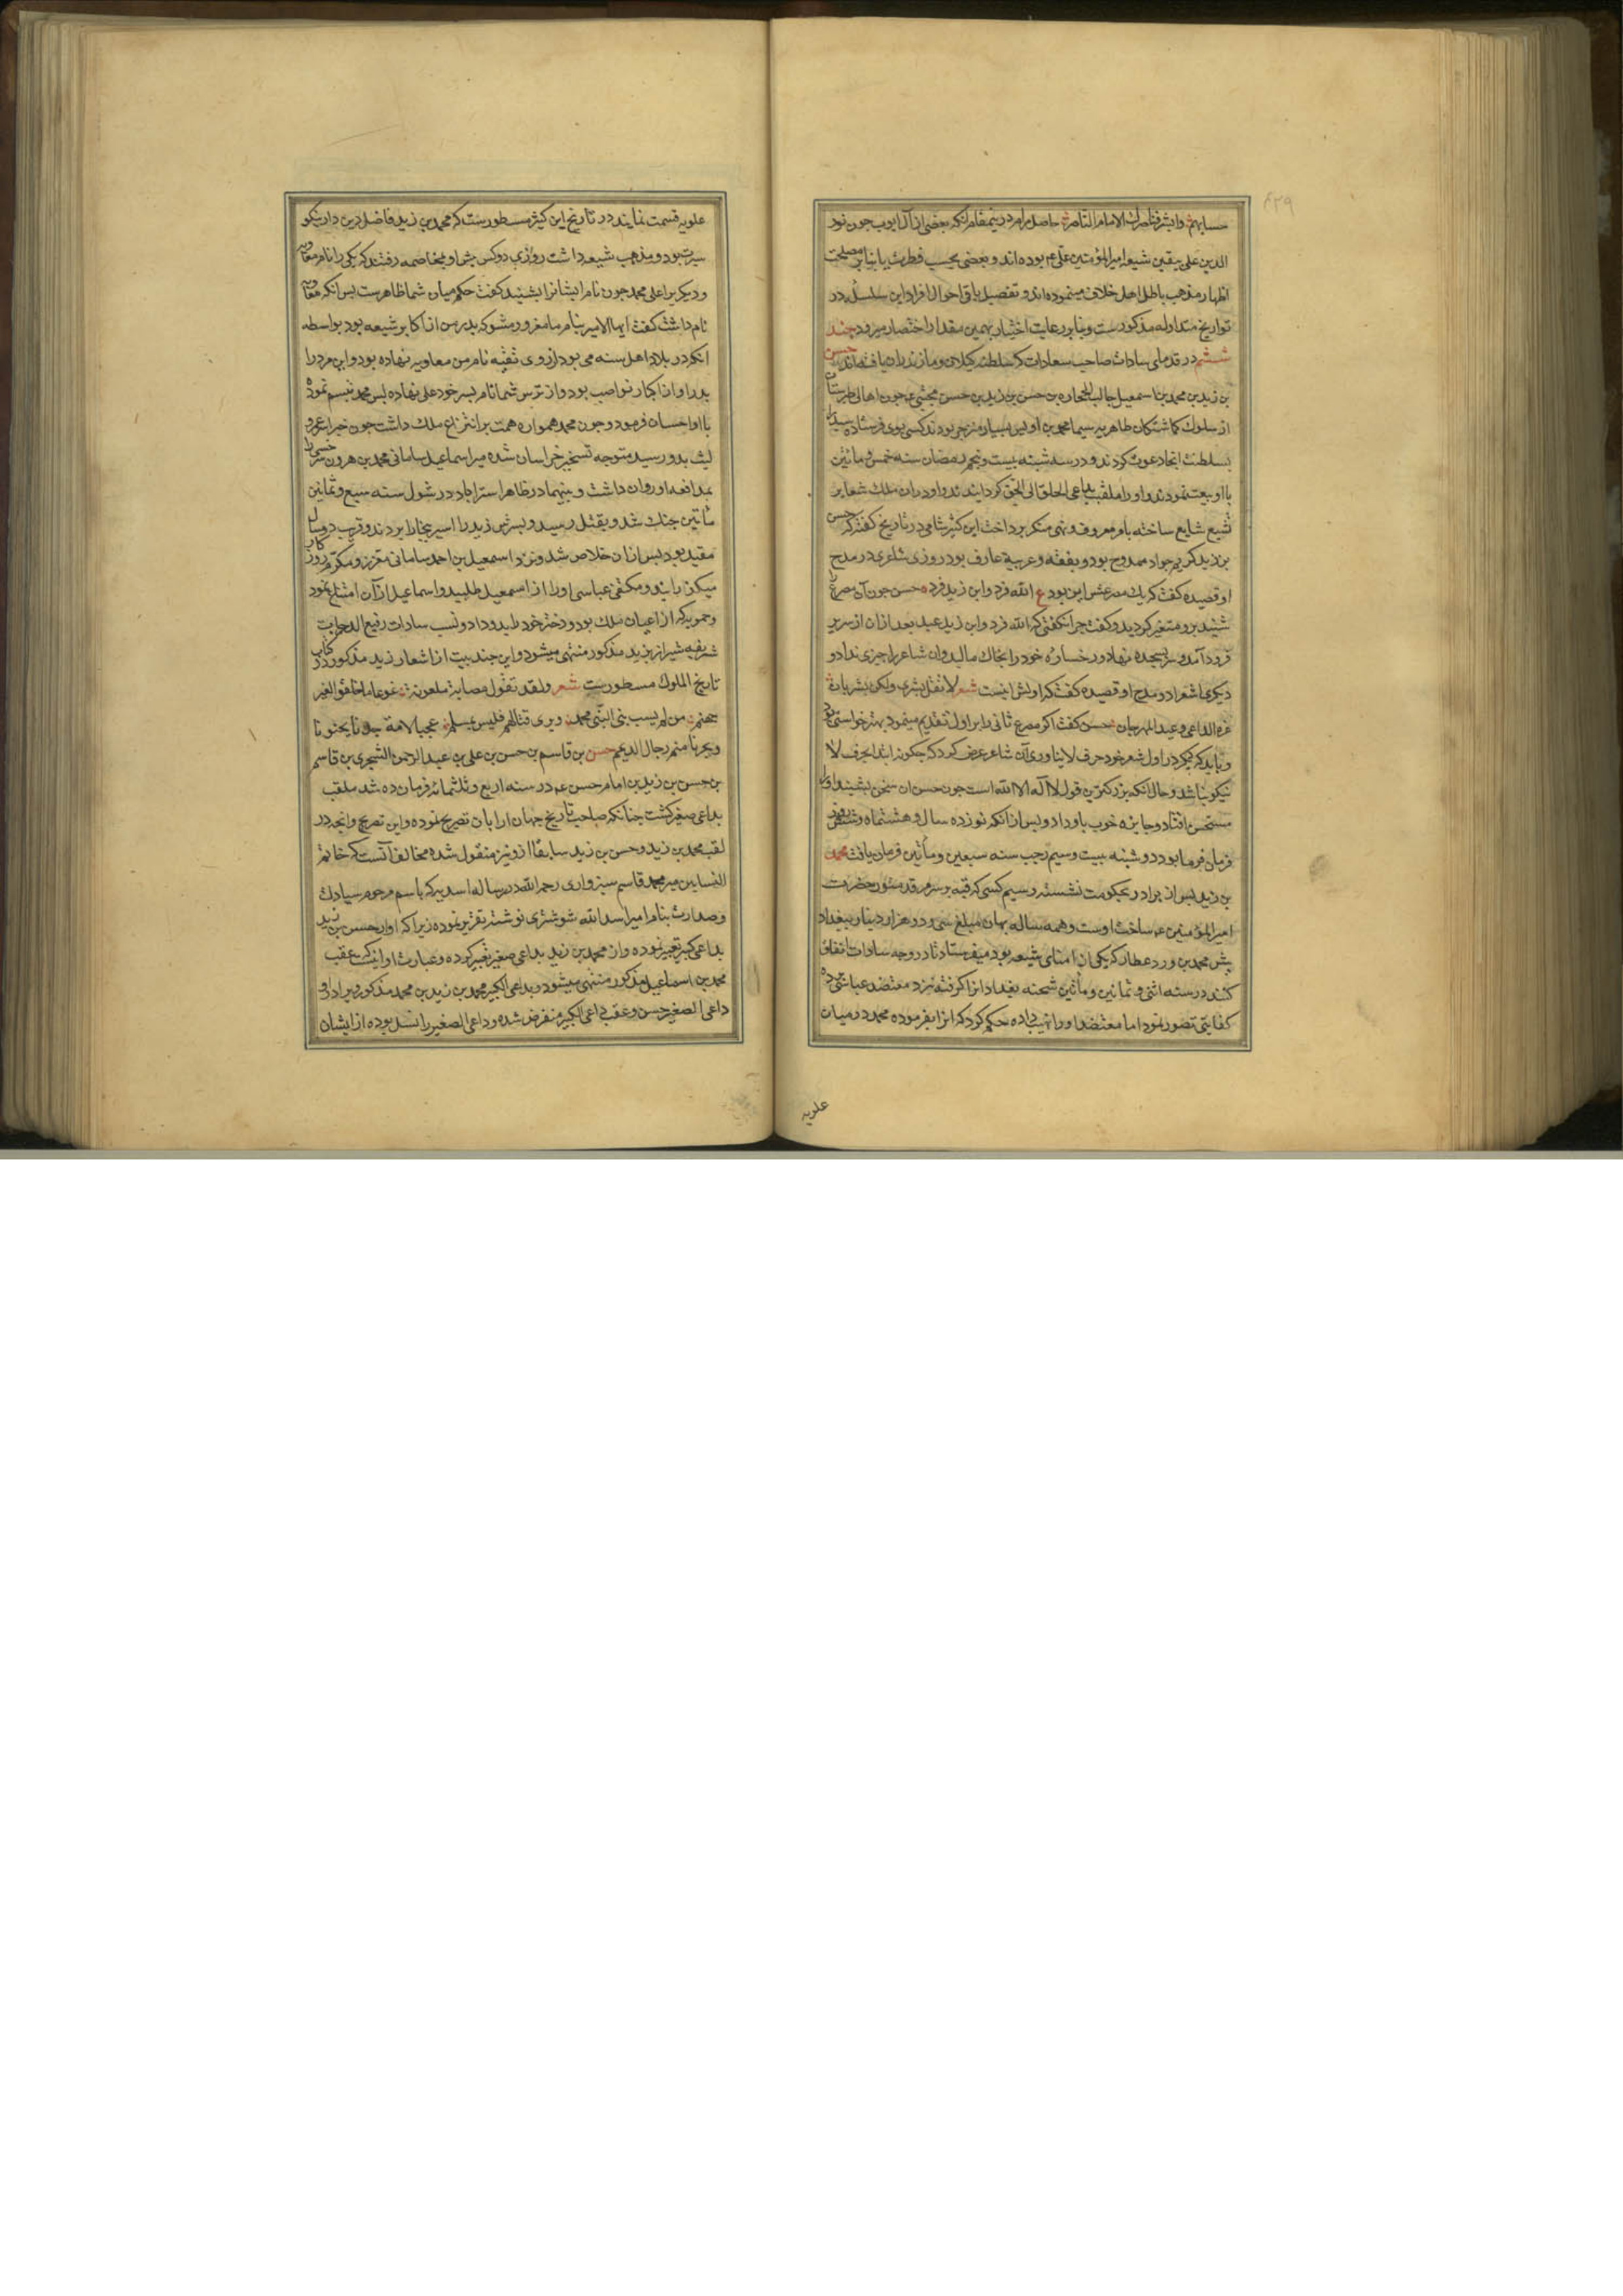 ۴۲۹
حسابهم وابشر فناصرک الامام الناصر حاصل مرام درینمقام آنکه بعضی از آل ایوب چون نور
الدین علی بیقین شیعه امیرالمؤمنین علی عم بوده‌اند و بعضی بحسب فطرت یا بنابر مصلحت
اظهار مذهب باطل اهل خلاف مینموده‌اند و تفصیل باقی احوال افراد این سلسله در
تواریخ متداوله مذکورست و بنابر رعایت اختیار بهمین مقدار اختصار میرود جند
ششم در قدمای سادات صاحب سعادات که سلطنت کیلان و مازندران یافته‌اند حسن
بن زید بن محمد بن اسمعیل جالب الحجاره بن حسن بن زید بن حسن مجتبی عم چون اهالی طبرستان
از سلوک کماشتکان طاهریه سیما محمد بن اویس بسیار منزجر بودند کسی بوی فرستاده سیدرا
بسلطنت انجا دعوت کردند و در سه شنبه بیست و پنجم رمضان سنه خمس و مائتین
با او بیعت نمودند و او را ملقب بداعی الخلق الی الحق کردانیدند و او دران ملک شعایر
تشیع شایع ساخته بامر معروف و نهی منکر پرداخت ابن کثیر شامی در تاریخ کفته که حسن
بن زید کریم جواد ممدوح بود و بفقه و عربیة عارف بود روزی شاعری در مدح
او قصیده کفت که یک مصرعش این بود ع الله فرد و ابن زید فرد حسن چون آن مصرع را
شنید برو متغیر کردید و کفت چرا نکفتی که الله فرد و ابن زید عبد بعد ازان از سریر
فرود آمد و سر بسجده نهاد و رخساره خود را بخاک مالید و ان شاعر را چیزی نداد و
دیکری شعر در مدح او قصیده کفت که اولش اینست شعر لا تقل بشری ولکن بشریان
غرة الداعی و عید المهرجان حسن کفت اکر مصرع ثانی را بر اول تقدیم مینمود بهتر خواستی بود
و باید که دیکر در اول شعر خود حرف لا نیاوری آن شاعر عرض کرد که چکونه ابتدا بحرف لا
نیکو نباشد و حال آنکه بزرکترین قول لا آله الا الله است چون حسن ان سخن بشنید او را
مستحسن افتاد و جایزه خوب باو داد و پس از انکه نوزده سال و هشتماه و شش روز
فرمان فرما بود در دوشنبه بیست و سیم رجب سنه سبعین و مأتین فرمان یافت محمد
بن زید پس از برادر بحکومت نشسته و سیم کسی که قبه و سر مرقد منور حضرت
امیرالمؤمنین عم ساخت اوست و همه ساله پنهان مبلغ سی و دو هزار دینار ببغداد
پش محمد بن ورد عطار که یکی از امنای شیعه بود میفرستاد تا در وجه سادات انفاق
کنند در سنه اثنی و ثمانین و مأتین شحنه بغداد انرا کرفته نزد معتضد عباسی برده
کفایتی تصور نمود اما معتضد او را نهیب داده حکم کرد که انرا بفرموده محمد در میان
علویه
علویه قسمت نمایند در تاریخ ابن کثیر مسطورست که محمد بن زید فاضل دین دار نیکو
سیرت بود و مذهب شیعه داشت روزی دو کس پش او بمخاصمه رفتند که یکی را نام معاویه
و دیکری را علی محمد چون نام ایشانرا بشنید کفت حکم میان شما ظاهرست پس آنکه معاویه
نام داشت کفت ایها الامیر بنام ما مغرور مشو که پدر من از اکابر شیعه بود بواسطه
انکه در بلاد اهل سنه می بود از روی تقیه نام من معاویه نهاده بود و این مرد را
پدر او از اکابر نواصب بود و از ترس شما نام پسر خود علی نهاده پس محمد تبسم نمود
با او احسان فرمود و چون محمد همواره همت بر انتزاع ملک داشت چون خبر اسر عمرو
لیث بدو رسید متوجه تسخیر خراسان شده میر اسماعیل سامانی محمد بن هرون سرخسی را
بمدافعه او روان داشت و بینهما در ظاهر استراباد در شوال سنه سبع و ثمانین
مأتین جنک شد و بقتل رسید و پسرش زید را اسیر ببخارا بردند و قریب دو سال
مقید بود پس ازان خلاص شد و نزد اسمعیل بن احمد سامانی معزز و مکرم روزکار
میکذرانید و مکتفی عباسی او را از اسمعیل طلبید و اسماعیل از آن امتناع نمود
و حمویه که از اعیان ملک بود دختر خود را بدو داد و نسب سادات رفیع الدرجات
شریفیه شیراز بزید مذکور منتهی میشود و این چند بیت از اشعار زید مذکور در کتاب
تاریخ الملوک مسطورست شعر ولقد تقول عصابة ملعونة غوغاء ما خلقوا لغیر
جهنم من لم یسب بنی النبی محمد ویری قتالهم فلیس بمسلم عجبا لامة
ویجرنا منهم رجال الدیلم حسن بن قاسم بن حسن بن علی بن عبد الرحمن الشجری بن قاسم
بن حسن بن زید بن امام حسن عم در سنه اربع و ثلثمائه فرمان ده شد ملقب
بداعی صغیر کشت چنانکه صاحب تاریخ جهان ارا بان تصریح نموده و این تصریح و انچه در
لقب محمد بن زید و حسن بن زید سابقا ازو نیز منقول شده مخالف آنست که خاتم
النسابین میر محمد قاسم سبزواری رحمه الله در رساله اسدیه که باسم مرحوم سیادت
و صدارت پناه امیر اسد الله شوشتری نوشته تقریر نموده زیرا که او از حسن بن زید
بداعی کبیر تعبیر نموده و از محمد بن زید بداعی صغیر تعبیر کرده و عبارت او اینست که عقب
محمد بن اسماعیل مذکور منتهی میشود بداعی الکبیر محمد بن زید بن محمد مذکور و برادر او
داعی الصغیر حسن و عقب داعی الکبیر منقرض شده و داعی الصغیر را نسل بوده از ایشان